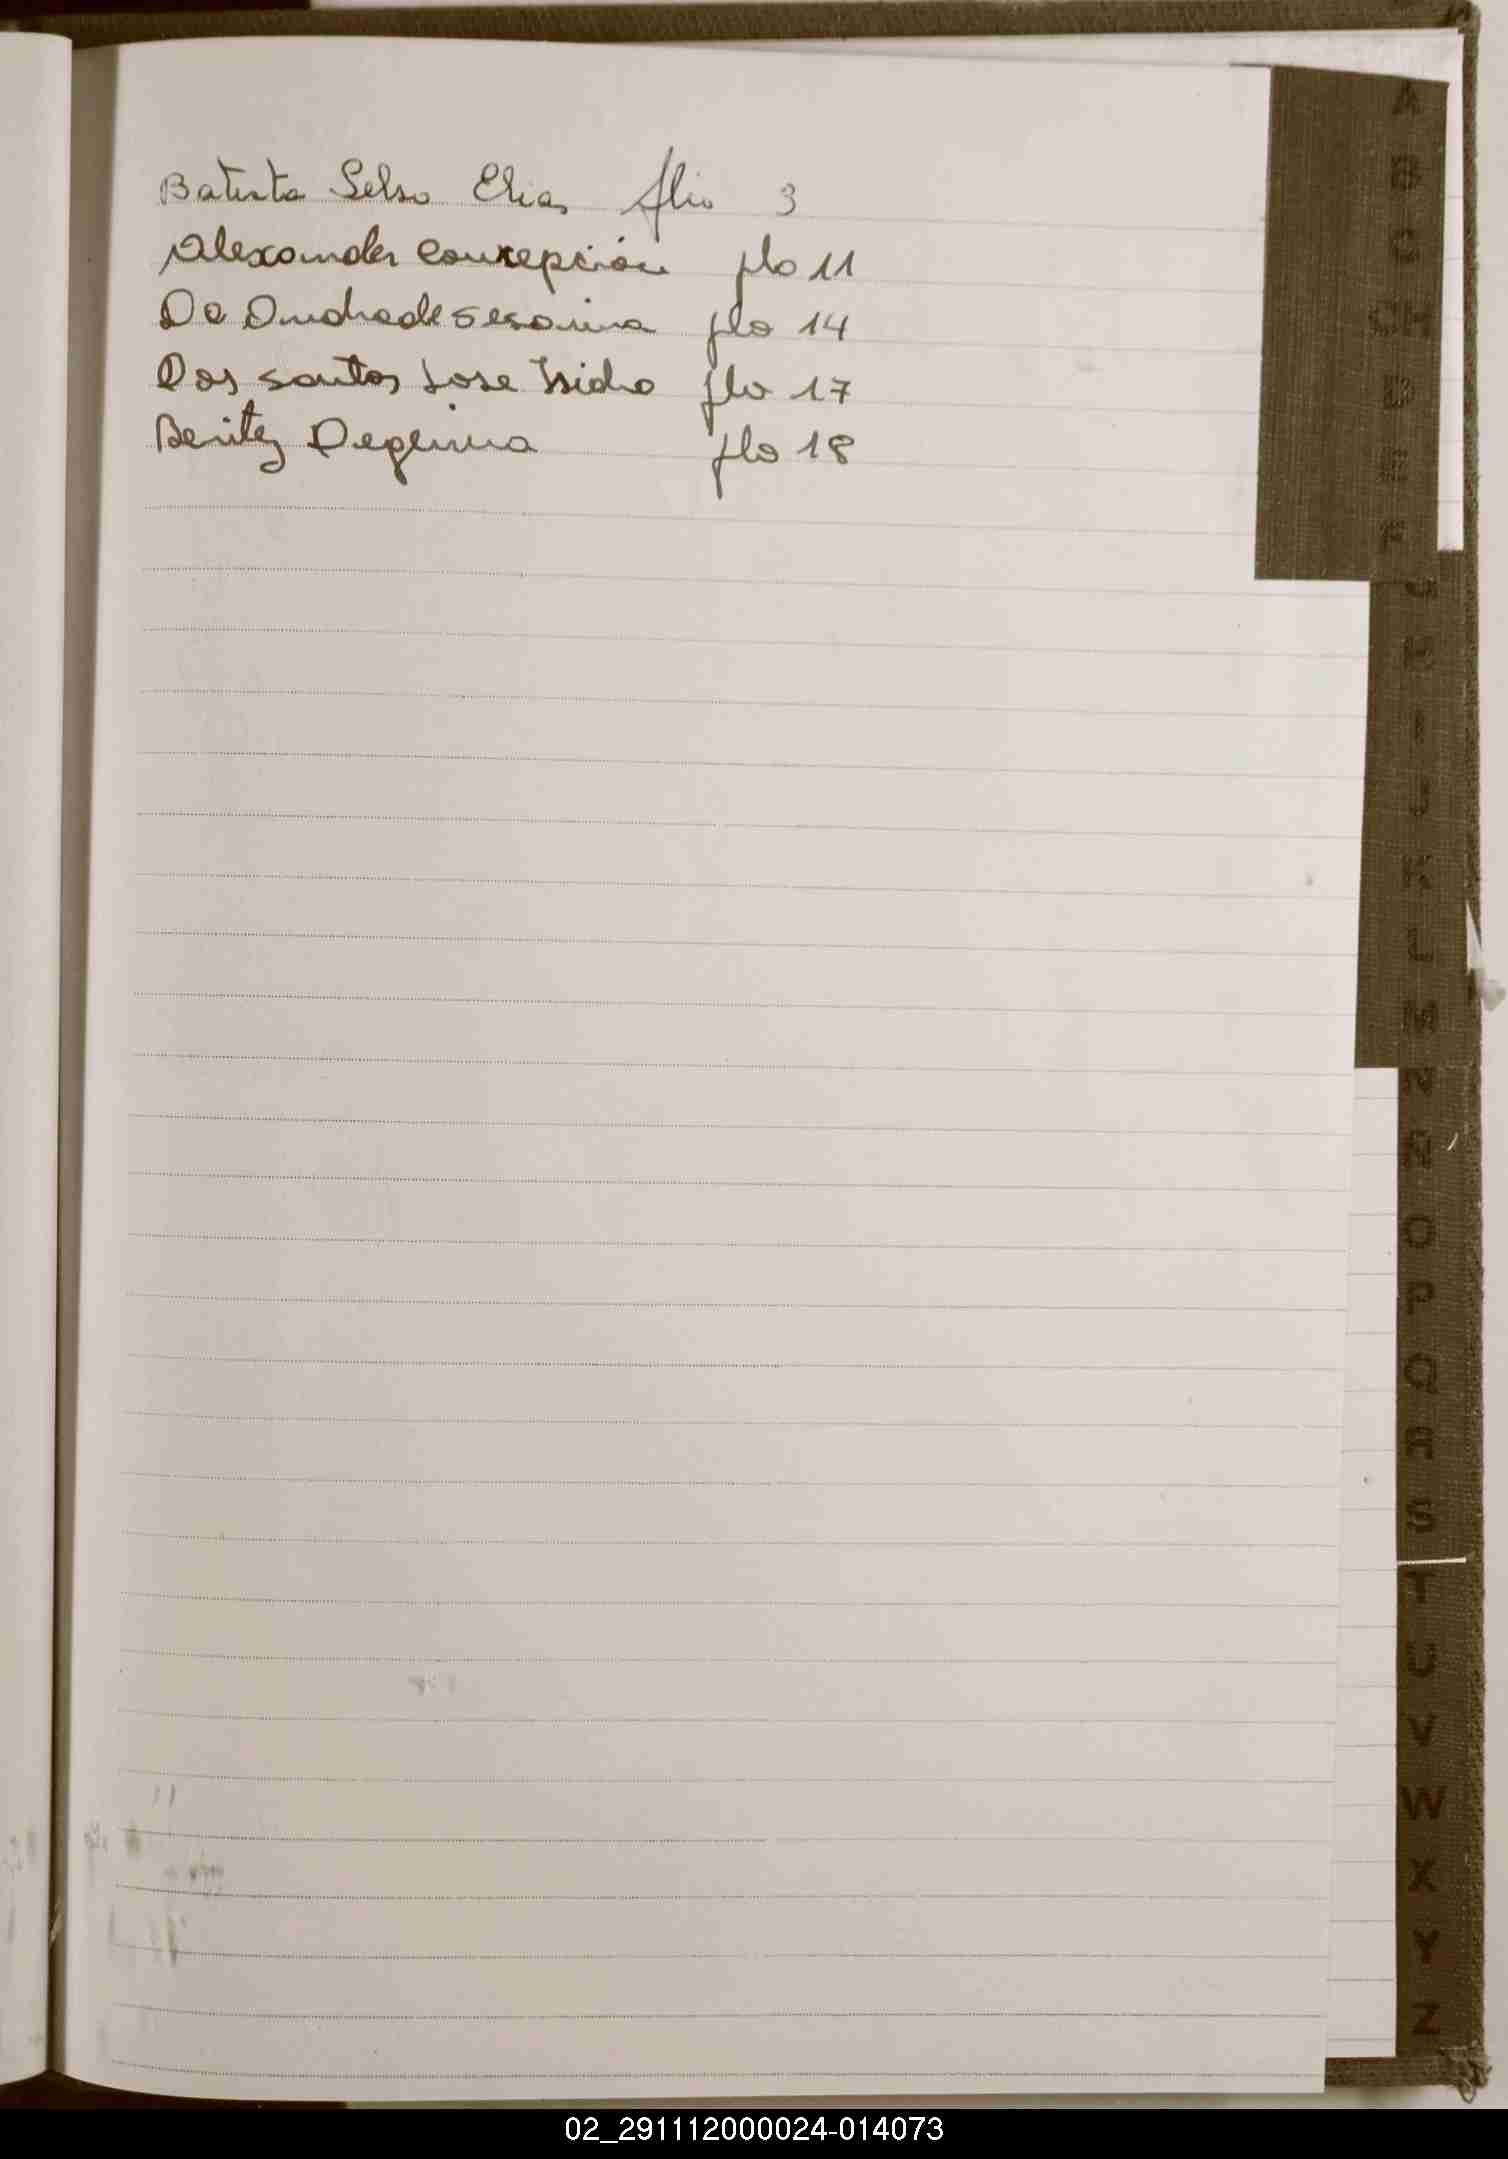 Batista Selso Elias flio 3
Alexander Concepción flo 11
De Andrade sesarina flo 14
Dos santos Jose Isidro flo 17
Benitez flo 18
A
B
C
CH
D
E
F
G
H
I
J
K
L
M
N
Ñ
O
P
Q
R
S
T
U
V
W
X
Y
Z
02_291112000024-014073